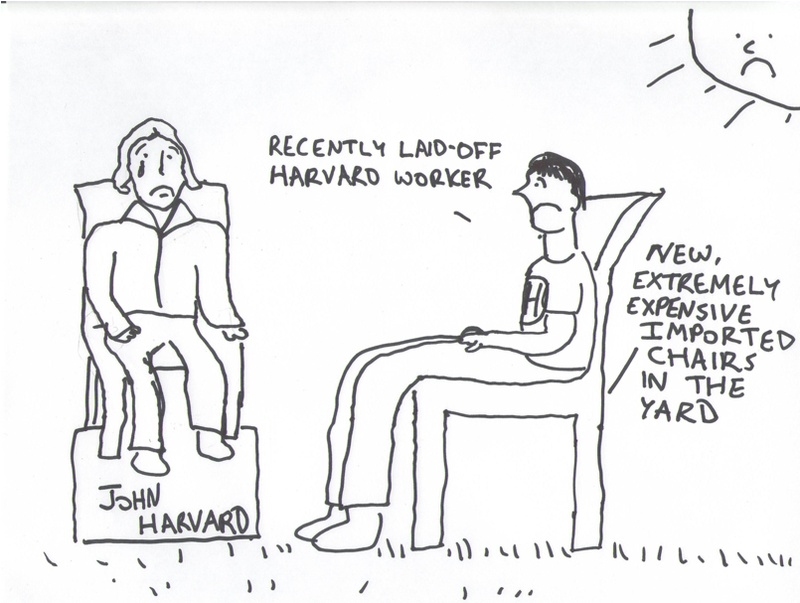 RECENTLY LAID-OFF
HARVARD WORKER
NEW,
EXTREMELY
EXPENSIVE
IMPORTED
CHAIRS
IN THE
YARD
H
JOHN
HARVARD